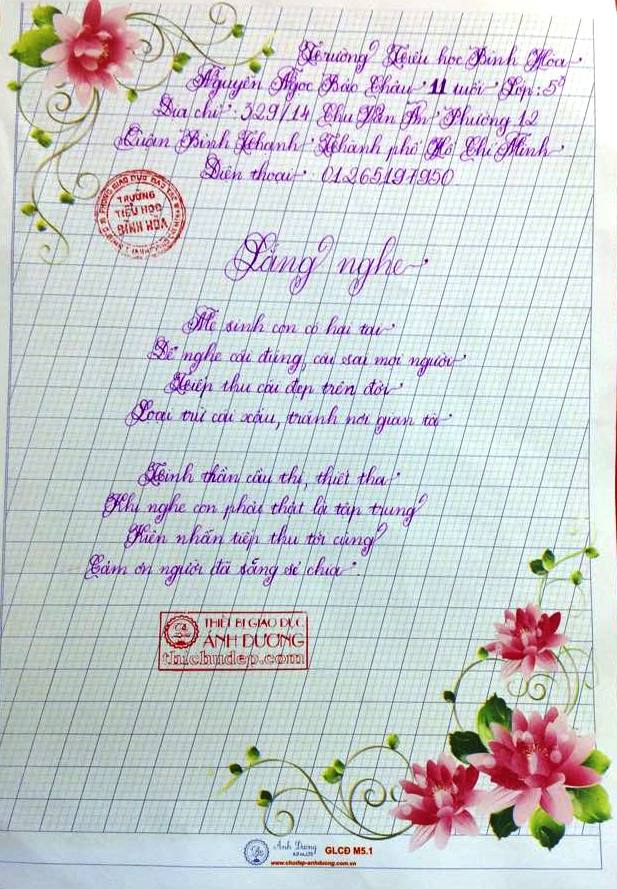 Trường Tiểu học Bình Hòa
Nguyễn Ngọc Bảo Châu 11 tuổi Lớp: 5³
Địa chỉ: 329/14 Chu Văn An Phường 12
Quận Bình Thạnh Thành phố Hồ Chí Minh
Điện thoại: 01265197950
TRƯỜNG
TIỂU HỌC
BÌNH HÒA
Lắng nghe
Mẹ sinh con có hai tai
Để nghe cái đúng, cái sai mọi người
Tiếp thu cái đẹp trên đời
Loại trừ cái xấu, tránh nơi gian tà
Tinh thần cầu thị, thiết tha
Khi nghe con phải thật là tập trung
Kiên nhẫn tiếp thu tới cùng
Cảm ơn người đã sẵng sẻ chia.
THIẾT BỊ GIÁO DỤC
ÁNH DƯƠNG
thichudep.com
Ánh Dương
GLCĐ M5.1
www.chudep-anhduong.com.vn